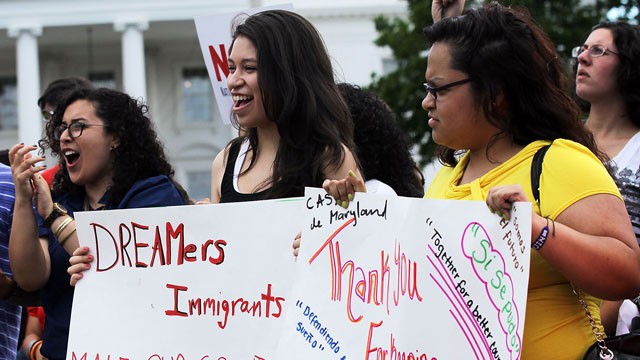 N
DREAMers
Immigrants
CAS
de Maryland
Thank You
For Keeping
"Defendiendo
Sueño"
"Together for a better
"Si Se Puede"
el futuro"